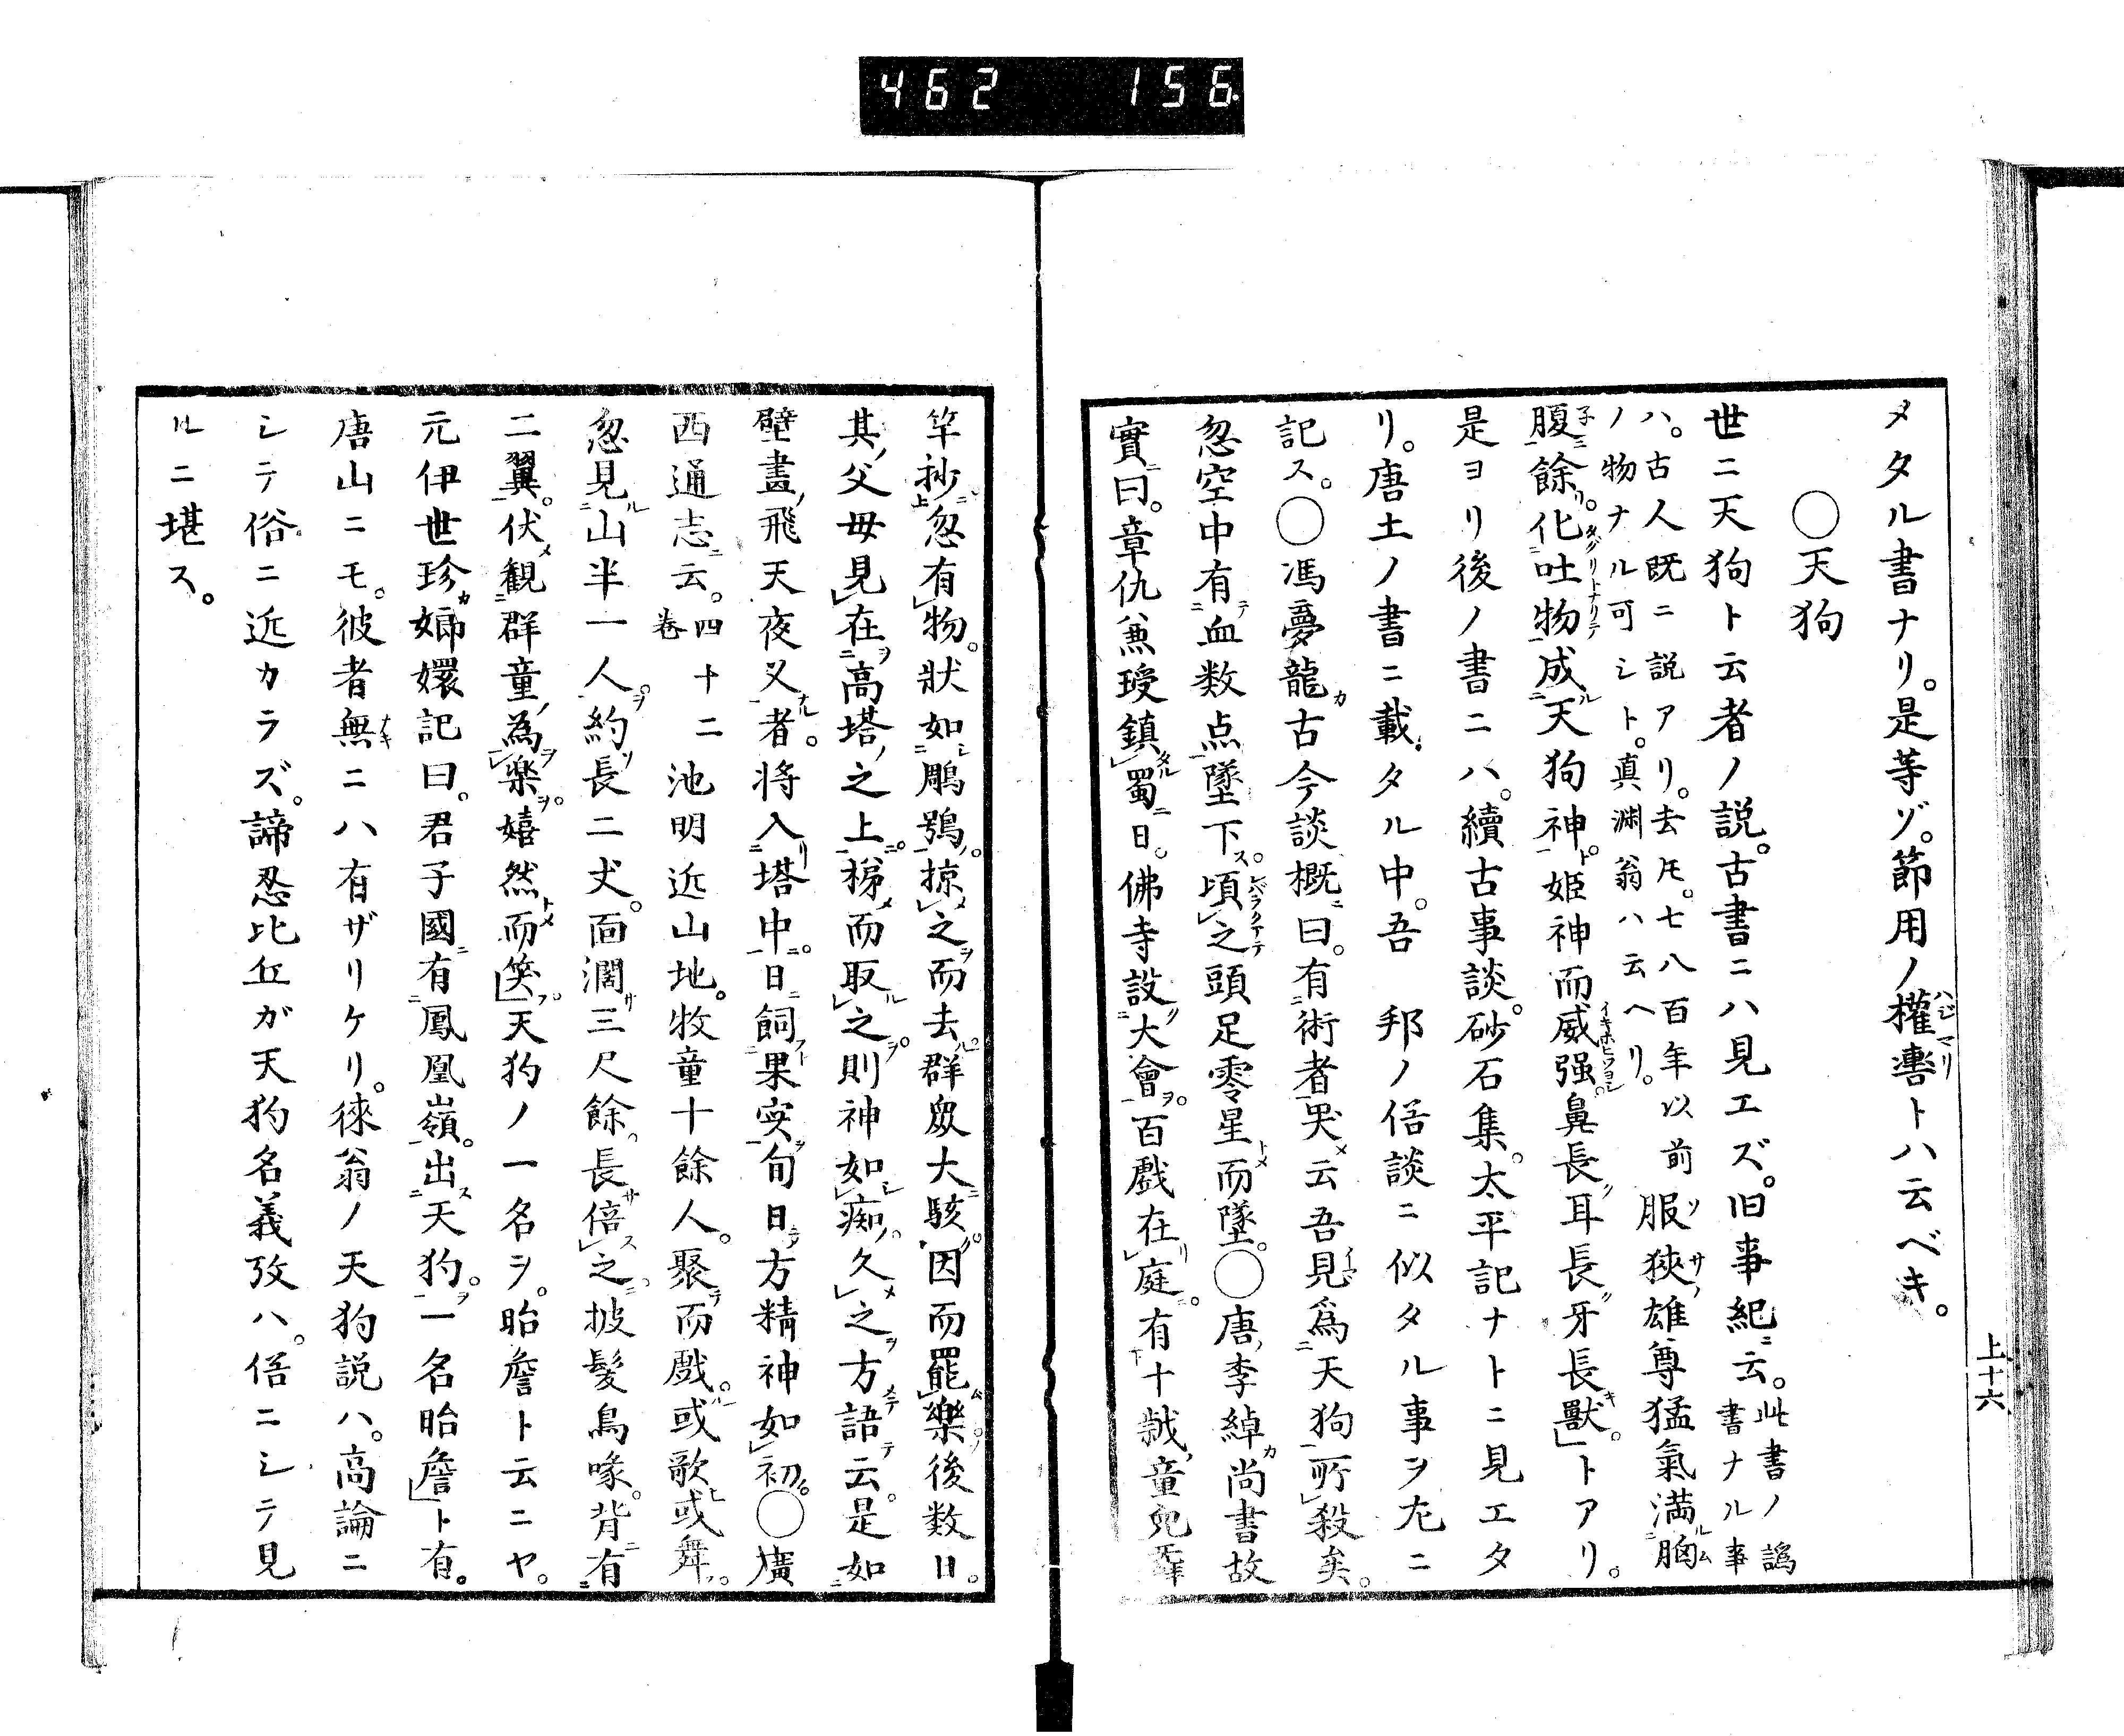 462 156
上十六
メタル書ナリ。是等ゾ。節用ノ權輿トハ云ベキ。
〇天狗
世ニ天狗ト云者ノ説。古書ニハ見エズ。旧事紀ニ云。此書ノ譌書ナル事
ハ。古人既ニ説アリ。去𪜈。七八百年以前ノ物ナル可シト。真淵翁ハ云ヘリ。服狹雄尊猛氣満胸
腹餘。化吐物成天狗神。姫神而威强。鼻長耳長牙長獸トアリ。
是ヨリ後ノ書ニハ。續古事談。砂石集。太平記ナトニ見エタ
リ。唐土ノ書ニ載タル中。吾 邦ノ俗談ニ似タル事ヲ左ニ
記ス。〇馮夢龍カ古今談概ニ曰。有術者哭云吾見爲天狗所殺矣。
忽空中有血数点墜下。頃之頭足零星而墜。〇唐李綽カ尚書故
實曰。章仇兼瓊鎮蜀日。佛寺設大會。百戲在庭。有十歳童兒舞
竿抄忽有物。狀如鵰鶚。掠之而去群衆大駭。因而罷樂後数日。
其父母見在高塔之上。梯而取之則神如痴久之方語云。是如
壁畫飛天夜叉者。将入塔中。日飼果実旬日方精神如初。〇廣
西通志云。四十二卷 池明近山地。牧童十餘人。聚而戲。或歌或舞。
忽見山半一人。約長二丈。面濶三尺餘。長倍之。披髮鳥喙。背有
二翼。伏観群童為樂。嬉然而笑。天狗ノ一名ヲ。眙詹ト云ニヤ。
元伊世珍カ嫏嬛記曰。君子國有鳳凰嶺。出天狗。一名眙詹ト有。
唐山ニモ。彼者無ニハ有ザリケリ。徠翁ノ天狗説ハ。高論ニ
シテ俗ニ近カラズ。諦忍比丘ガ天狗名義攷ハ。俗ニシテ見
ルニ堪ス。